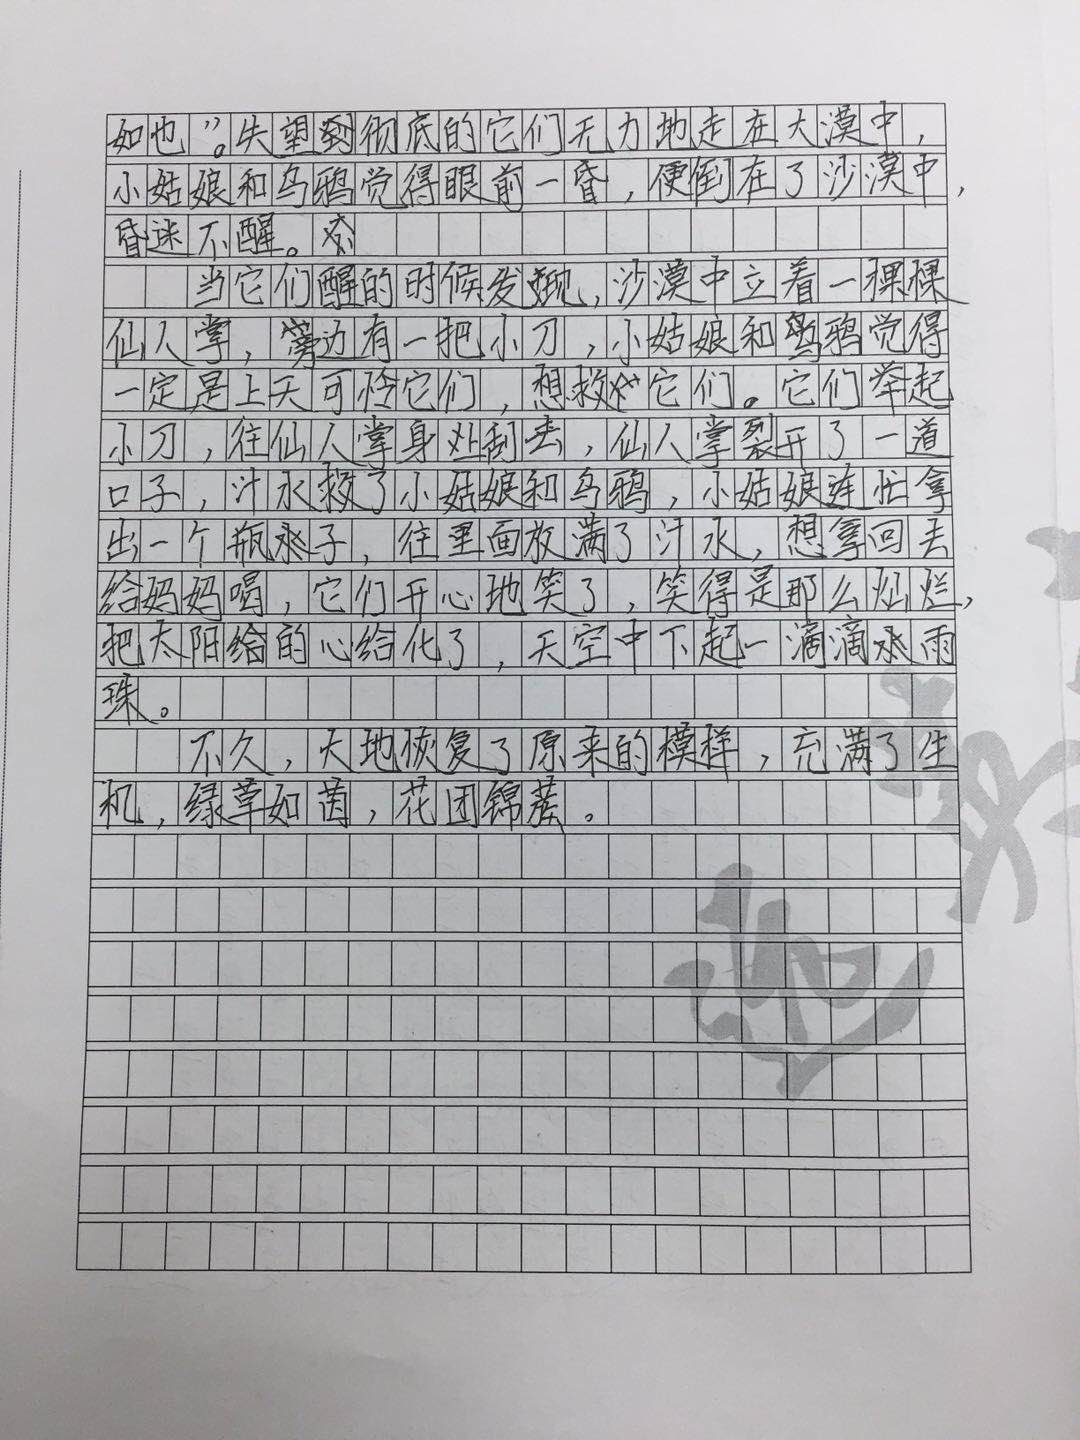 如也”。失望到彻底的它们无力地走在大漠中，
小姑娘和乌鸦觉得眼前一昏，便倒在了沙漠中，
昏迷不醒。
当它们醒的时候发现，沙漠中立着一棵棵
仙人掌，旁边有一把小刀，小姑娘和乌鸦觉得
一定是上天可怜它们，想救它们。它们举起
小刀，往仙人掌身处刮去，仙人掌裂开了一道
口子，汁水救了小姑娘和乌鸦，小姑娘连忙拿
出一个瓶水子，往里面放满了汁水，想拿回去
给妈妈喝，它们开心地笑了，笑得是那么灿烂，
把太阳给的心给化了，天空中下起一滴滴水雨
珠。
不久，大地恢复了原来的模样，充满了生
机，绿草如茵，花团锦簇。